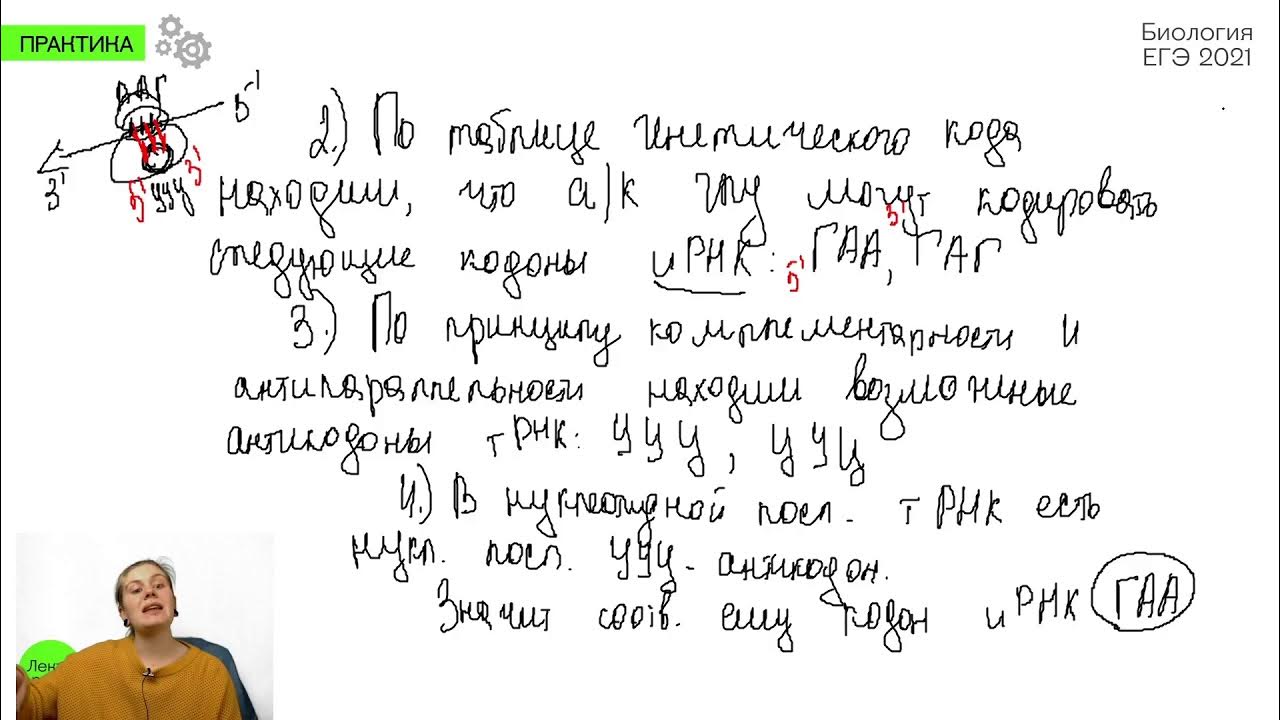 ПРАКТИКА
Биология
ЕГЭ 2021
ГАГ
5'
3'
5' УУЦ 3'
2.) По таблице генетического кода
находим, что а/к глу могут кодировать
следующие кодоны иРНК: 5' ГАА 3', ГАГ
3.) По принципу комплементарности и
антипараллельности находим возможные
антикодоны тРНК: УУЦ, УУЦ
4.) В нуклеотидной посл. тРНК есть
нукл. посл. УУЦ - антикодон.
Значит соотв. ему кодон иРНК ГАА